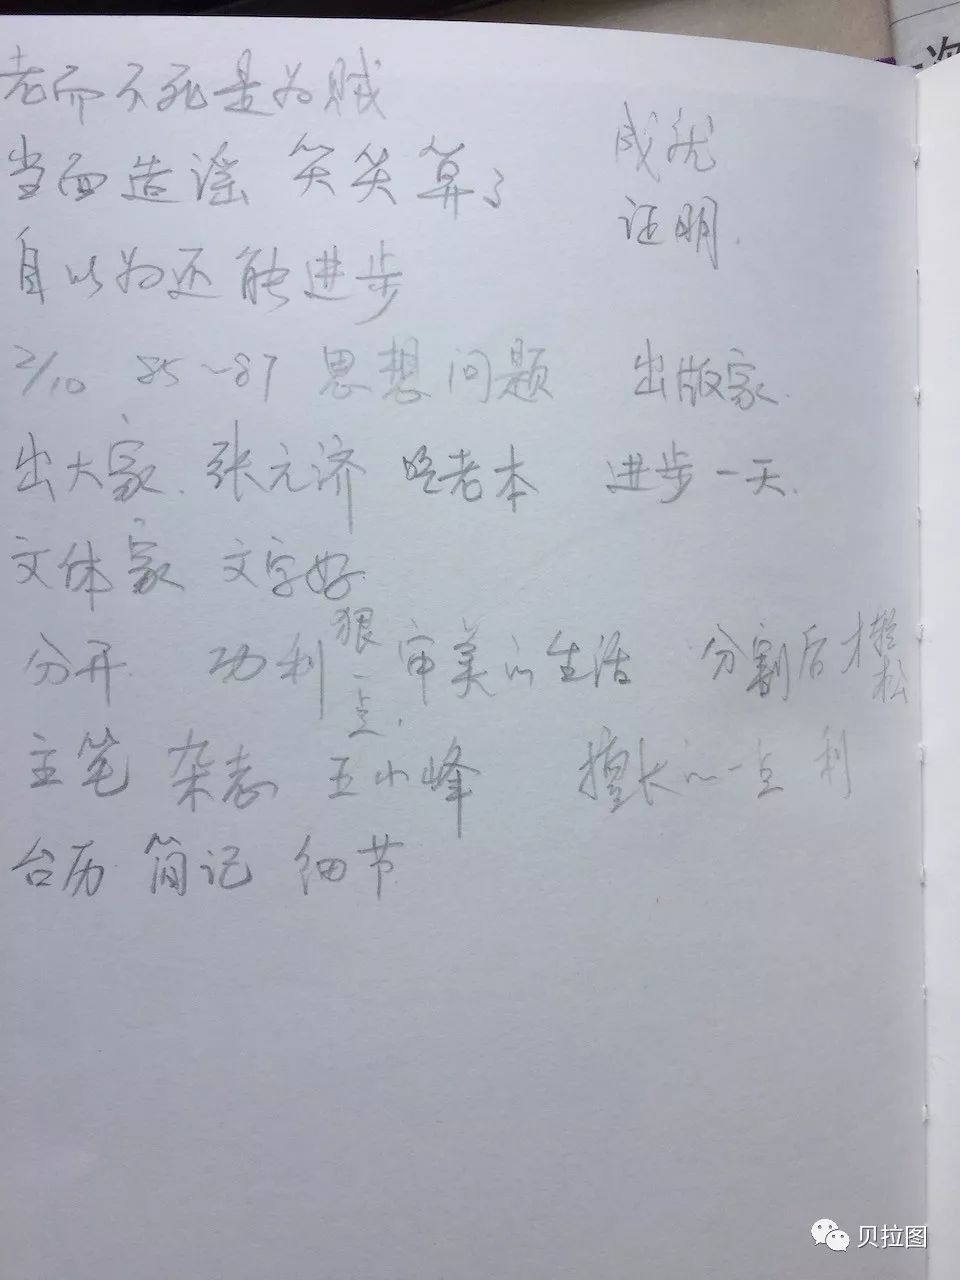 老而不死是为贼
当面造谣 笑笑算了
成就
证明.
自以为还能进步
2/10 85~87 思想问题 出版家.
出大家. 张元济 吃老本 进步一天.
文体家 文字好
分开. 功利狠一点. 审美的生活 分割后才轻松
主笔 杂志 王小峰 擅长的一点 利
台历 简记 细节
贝拉图